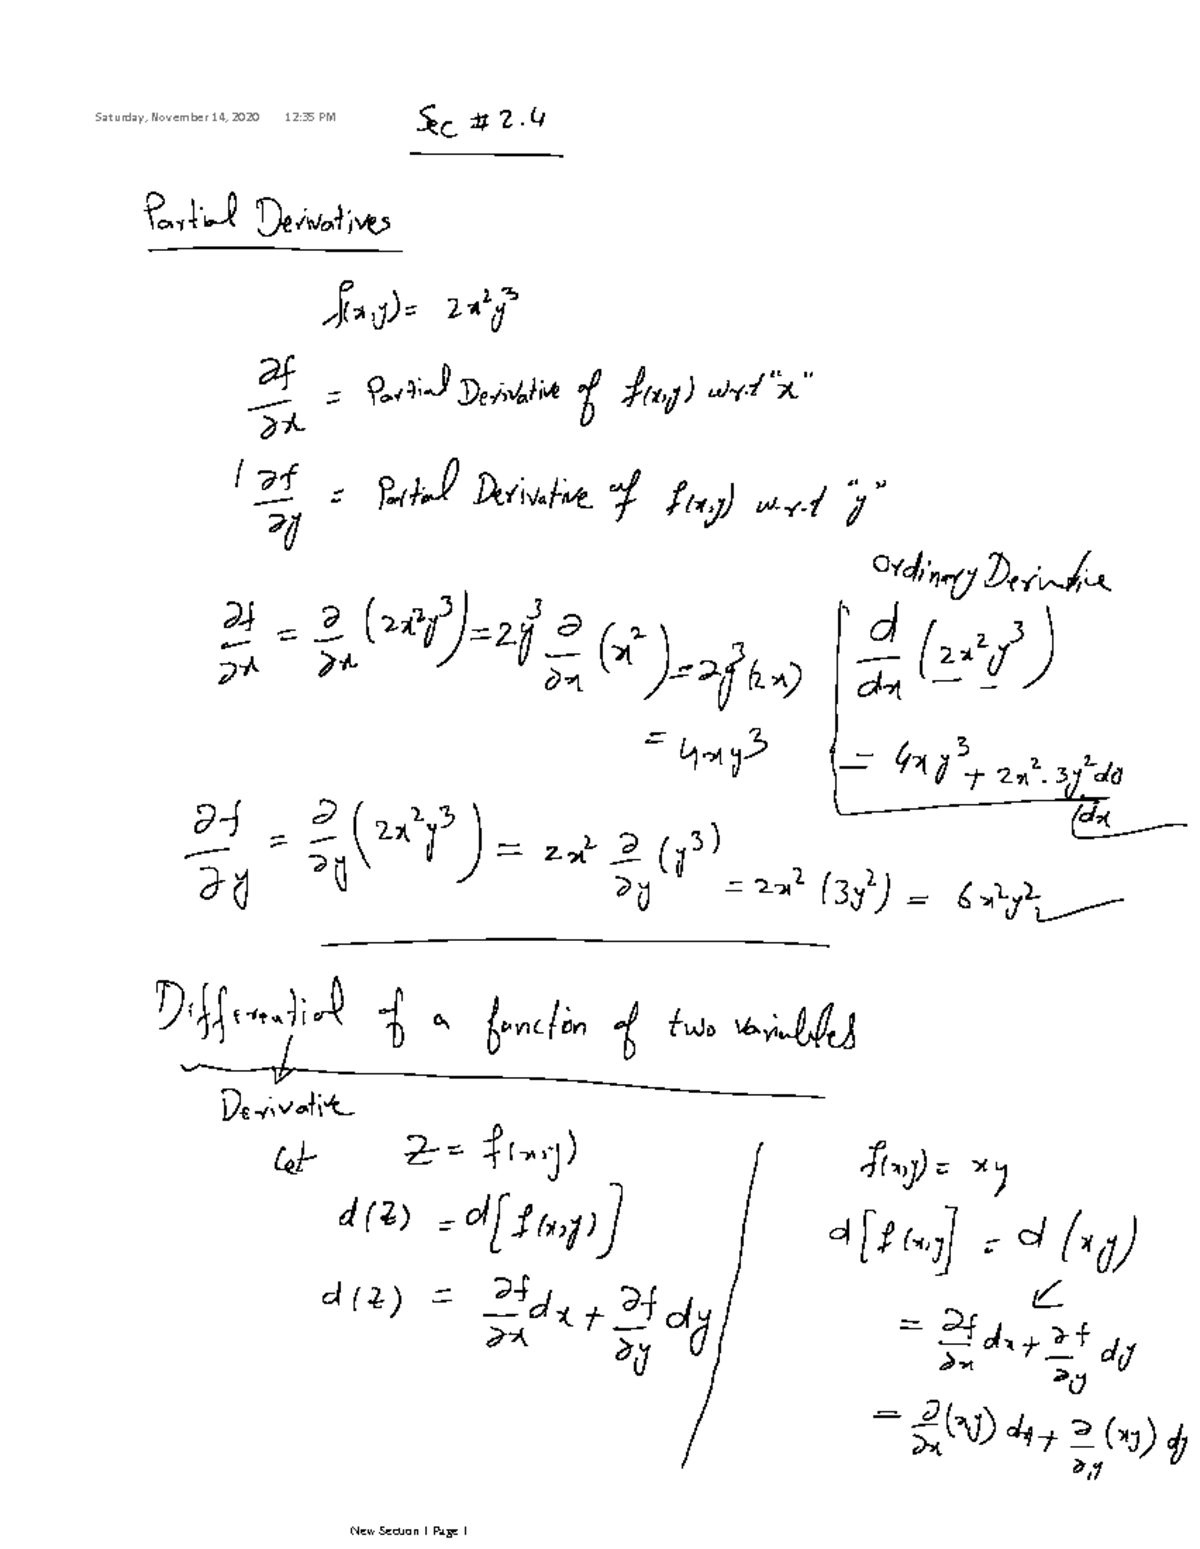 Saturday, November 14, 2020 12:35 PM
Sec # 2.4
Partial Derivatives
f(x,y) = 2x²y³
∂f/∂x = Partial Derivative of f(x,y) w.r.t "x"
∂f/∂y = Partial Derivative of f(x,y) w.r.t "y"
Ordinary Derivative
∂f/∂x = ∂/∂x (2x²y³) = 2y³ ∂/∂x (x²) = 2y³(2x)
= 4xy³
d/dx (2x²y³)
= 4xy³ + 2x².3y² dy/dx
∂f/∂y = ∂/∂y (2x²y³) = 2x² ∂/∂y (y³) = 2x² (3y²) = 6x²y²
Differential of a function of two variables
Derivative
Let Z = f(x,y)
d(Z) = d[f(x,y)]
d(Z) = ∂f/∂x dx + ∂f/∂y dy
f(x,y) = xy
d[f(x,y] = d(xy)
= ∂f/∂x dx + ∂f/∂y dy
= ∂/∂x (xy) dx + ∂/∂y (xy) dy
New Section 1 Page 1